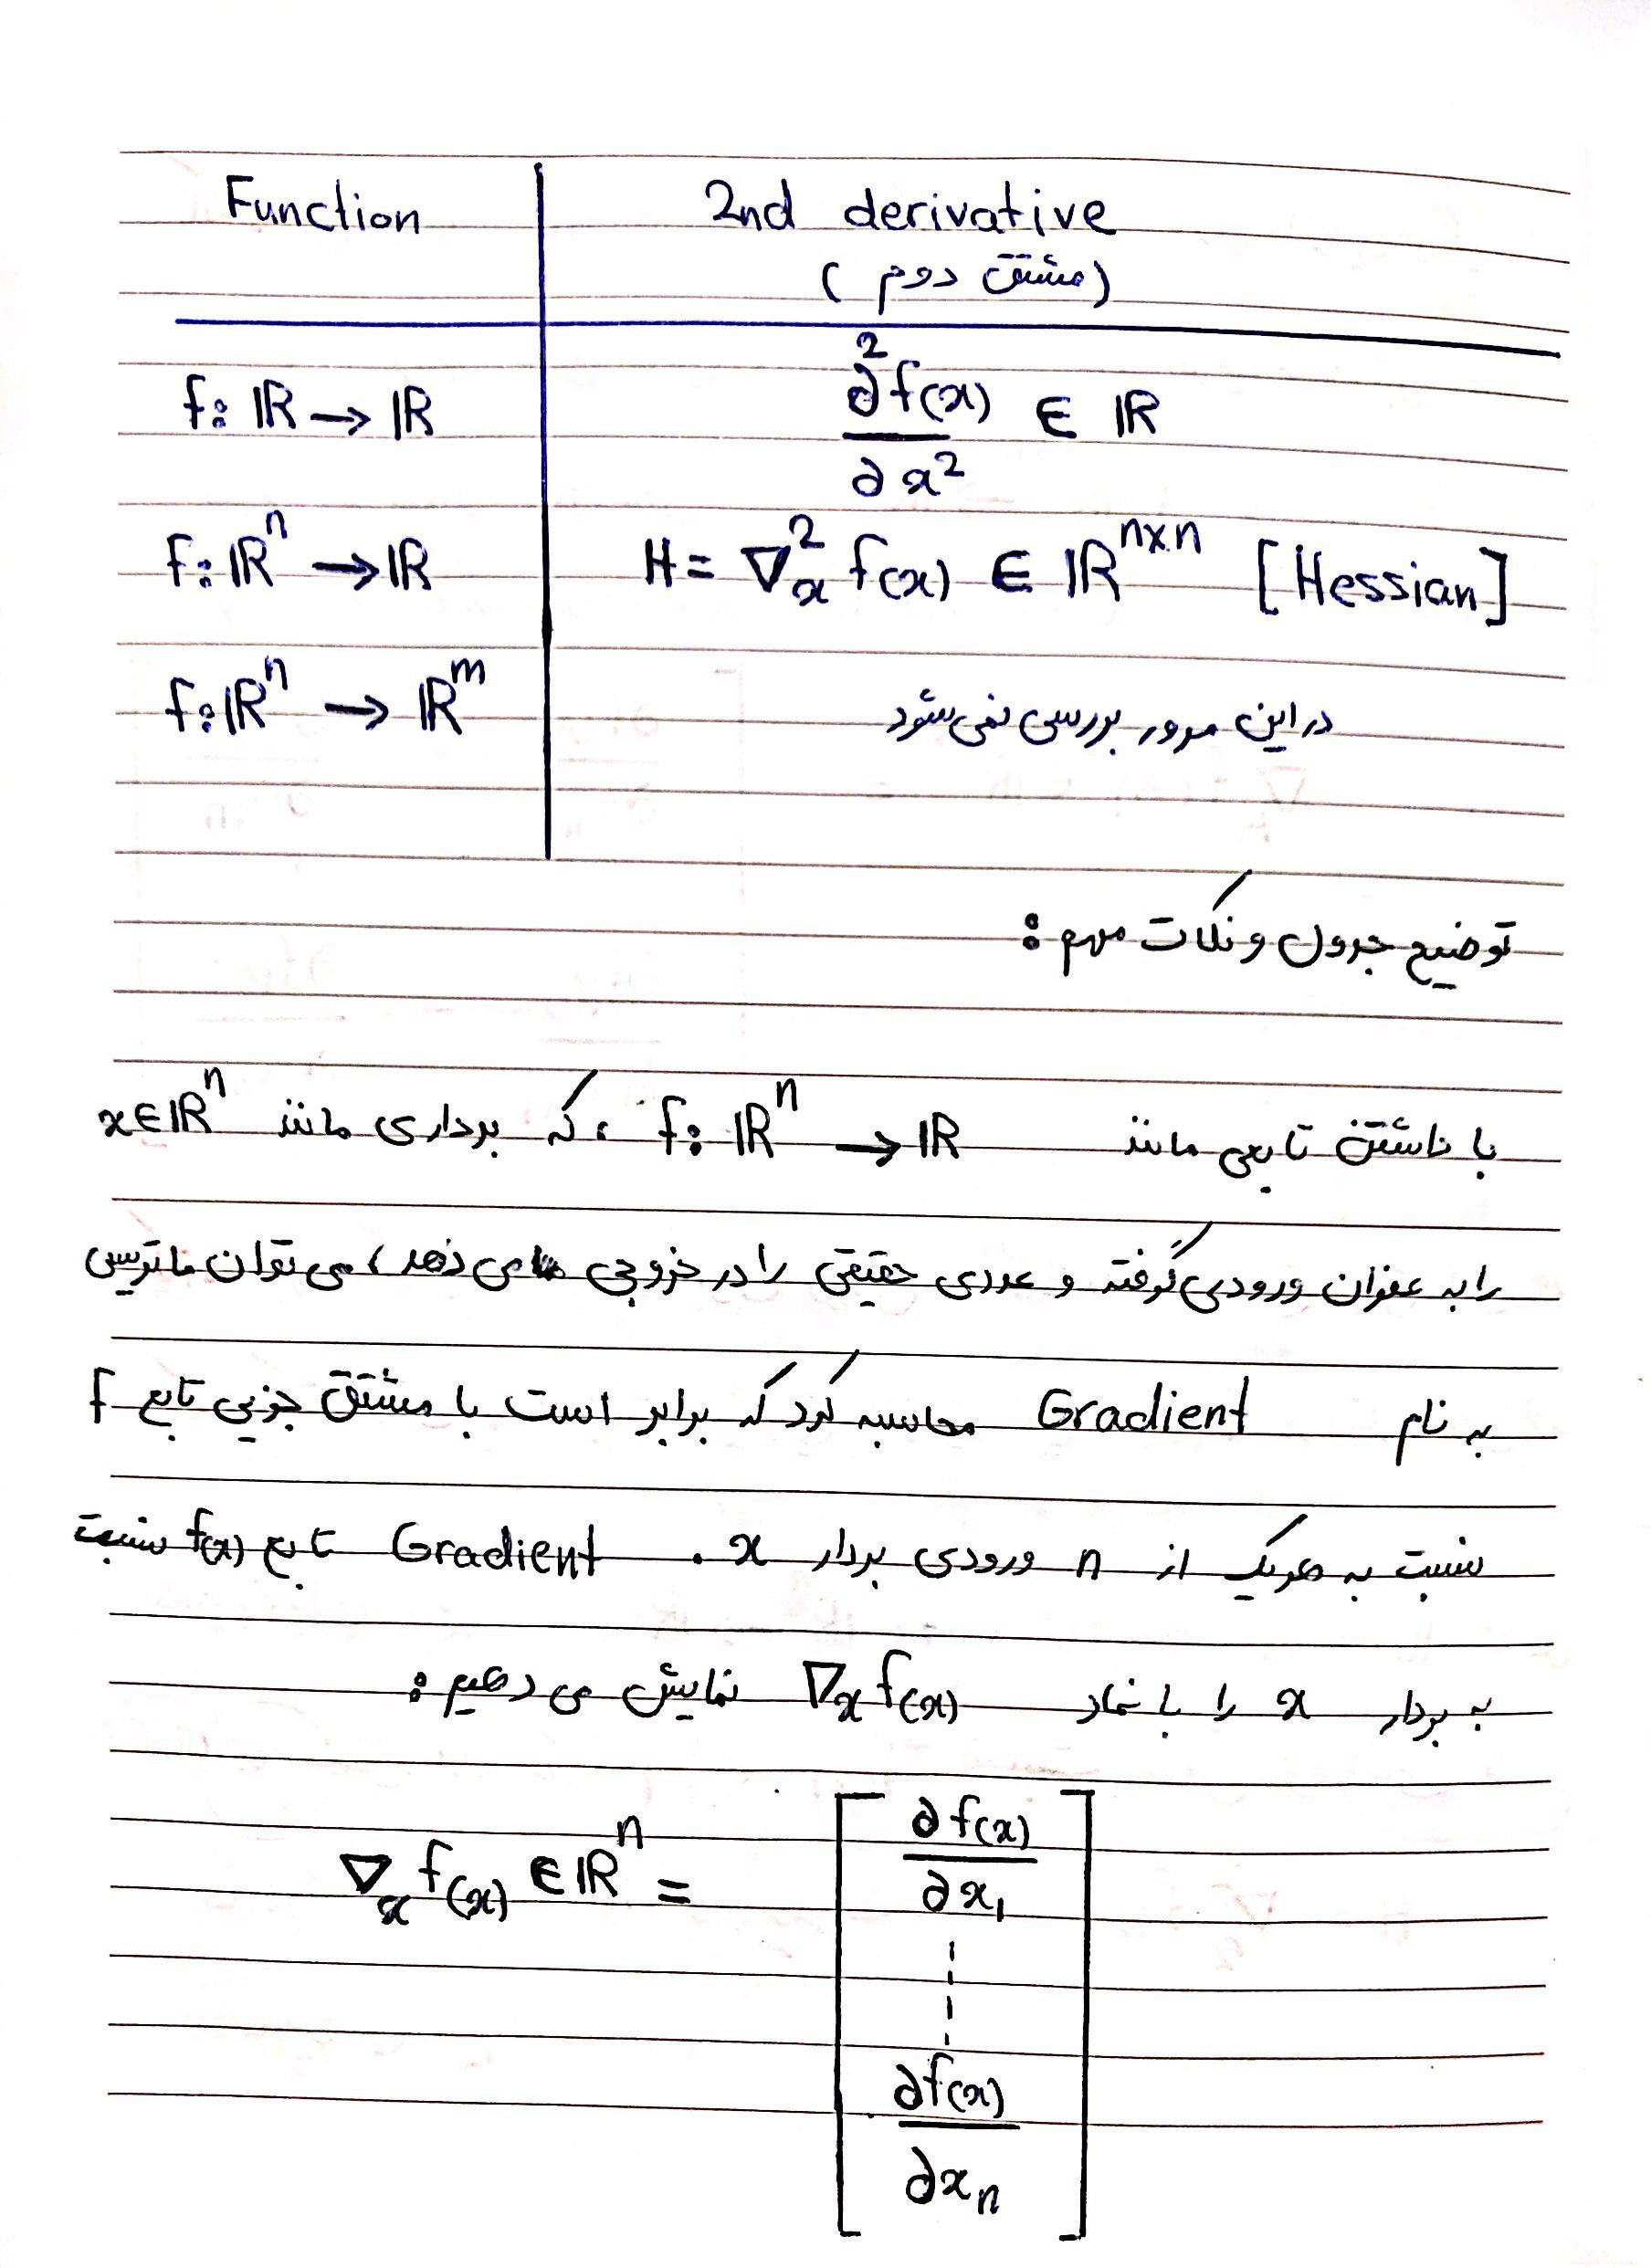 Function 2nd derivative
(مشتق دوم)
f: ℝ → ℝ ∂²f(x)/∂x² ∈ ℝ
f: ℝⁿ → ℝ H = ∇²ₓ f(x) ∈ ℝⁿˣⁿ [Hessian]
f: ℝⁿ → ℝᵐ در این مرور بررسی نمی‌شود
توضیح جدول و نکات مهم:
با داشتن تابعی مانند f: ℝⁿ → ℝ ، که برداری مانند x∈ℝⁿ
را به عنوان ورودی گرفته و عددی حقیقی را در خروجی می‌دهد، می‌توان ماتریس
به نام Gradient محاسبه کرد که برابر است با مشتق جزیی تابع f
نسبت به هریک از n ورودی بردار x. Gradient تابع f(x) نسبت
به بردار x را با نماد ∇ₓf(x) نمایش می‌دهیم:
∇ₓ f(x) ∈ ℝⁿ = [ ∂f(x)/∂x₁
⋮
∂f(x)/∂xₙ ]